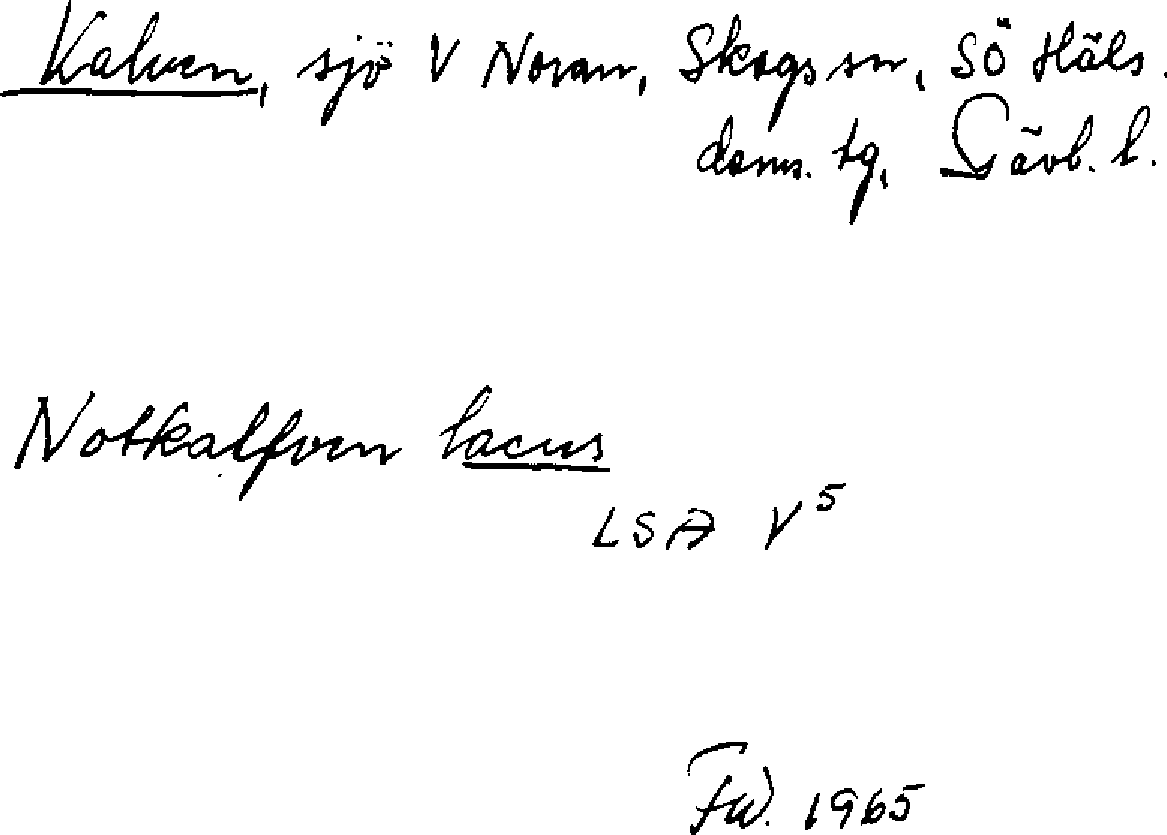 Kalven, sjö V Noran, Skogs sn, SÖ Häls.
doms. tg, Gävl. l.
Notkalfven lacus
LSA V5
Fw. 1965